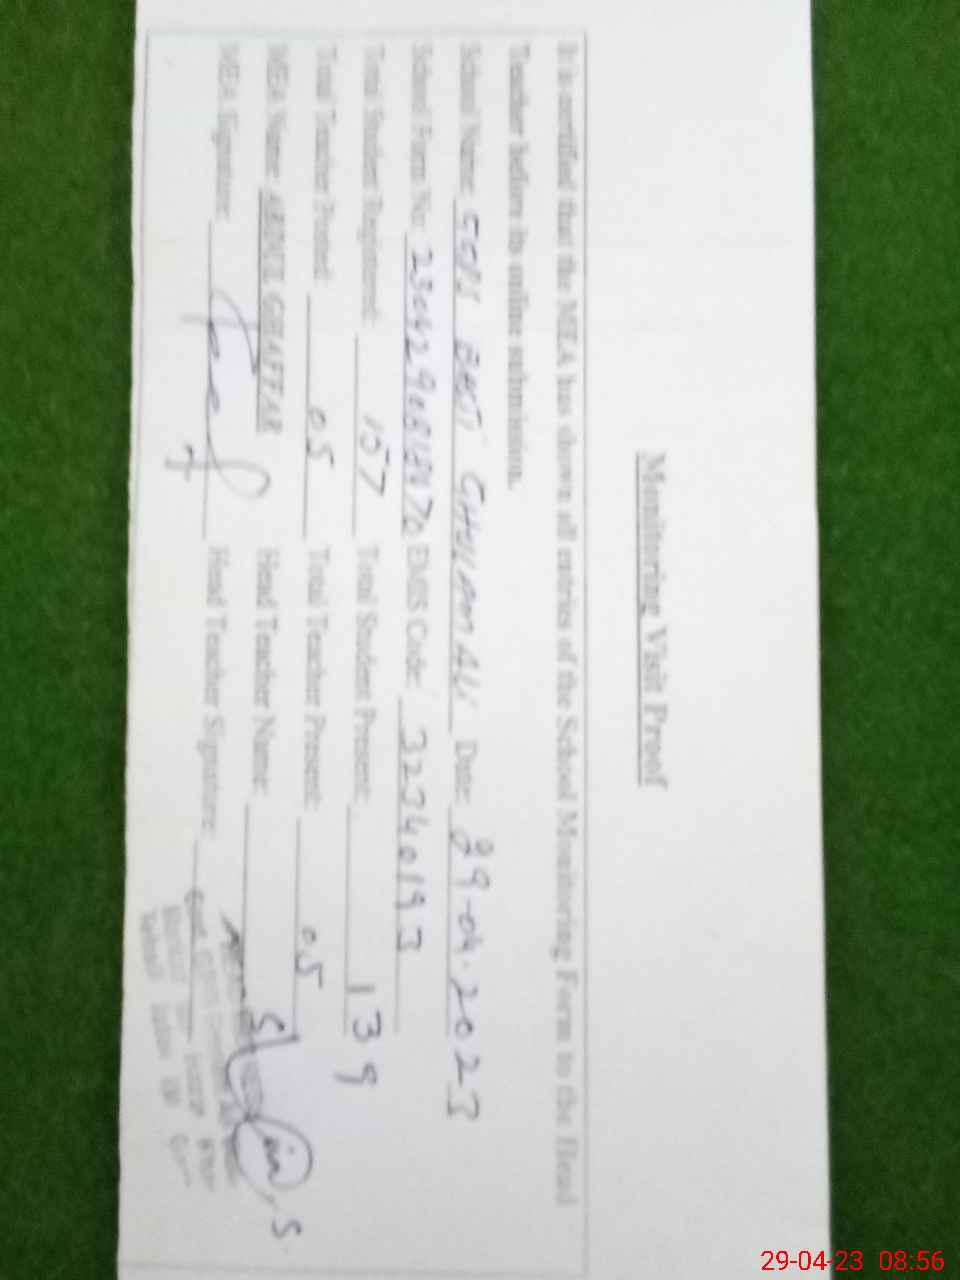 Monitoring Visit Proof
It is certified that the MEA has shown all entries of the School Monitoring Form to the Head
Teacher before its online submission.
School Name: GOVT BASTI GHULAM ALI Date: 29-04-2023
School Form No: EMIS Code: 32340193
Total Student Registered: 157 Total Student Present: 139
Total Teacher Posted: 05 Total Teacher Present: 05
MEA Name: ABDUL GHAFFAR Head Teacher Name:
MEA Signature: Head Teacher Signature:
29-04-23 08:56